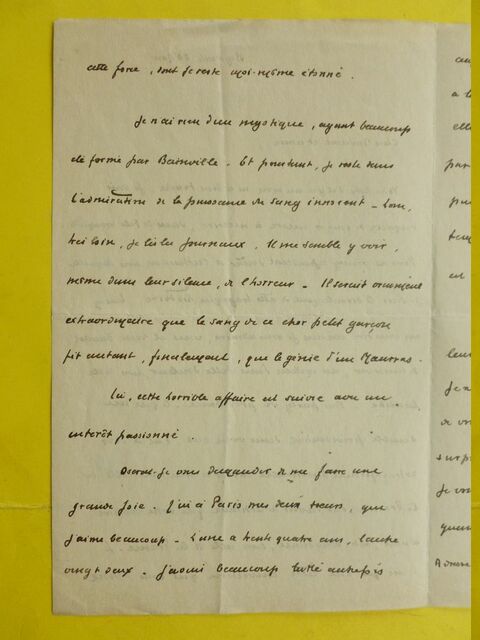 cette force, dont je reste moi-même étonné.
Je n'ai rien d'un mystique, ayant beaucoup
été formé par Bainville. Et pourtant, je reste dans
l'admiration de la puissance du sang innocent - Loin,
très loin, je lis les journaux. Il me semble y voir,
même dans leur silence, de l'horreur - Il serait vraiment
extraordinaire que le sang de ce cher petit garçon
fit autant, finalement, que le génie d'un Maurras.
Ici, cette horrible affaire est suivie avec un
intérêt passionné.
Oserai-je vous demander de me faire une
grande joie. J'ai à Paris mes deux sœurs, que
j'aime beaucoup - L'une a trente quatre ans, l'autre
vingt deux - J'avais beaucoup lutté autrefois
a l
elle
par
est
leur
Je n
surp
Je vo